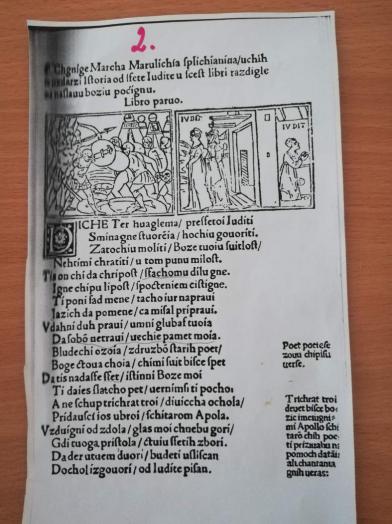 2.
Chgnige Marcha Marulichia splichianina/uchih
uudarzi Istoria od sfete Iudite u scest libri razdigle
na nslauu boziu počignu.
Libro paruo.
IVDIT
IVDIT
DICHE Ter huaglema/ presfetoi Iuditi
Sminagne stuorčia/ hochiu gouoriti.
Zatochiu moliti/ Boze tuoiu suitlost/
Nehtimi chratiti/ u tom punu milost.
Tis on chi da chripost/ sfachomu dilu gne.
Igne chipu lipost/ spočteniem cistigne.
Ti poni sad mene/ tacho iur napraui
Iazich da pomene/ ca misal pripraui.
Vdahni duh praui/ umni glubaf tuoia
Da sobō netraui/ uechie pamet moia.
Bludechi ozoia/ zdruzbō starih poet/
Boge ctoua choia/ chimi suit bisce spet
Da tis nadasse sfet/ istinni Boze moi
Ti daies slatcho pet/ uernimsf ti pochoi
A ne schup trichrat troi/ diuiccha ochola/
Pridausci ios ubroi/ schitarom Apola.
Vzduigni od zdola/ glas moi chnebu gori/
Gdi tuoga pristola/ ctuiu sfetih zbori.
Da der utuem duori/ budeti usliscan
Dochol izgouori/ od Iudite pisan.
Poet potiese
zouu chipisu
uerse.
Trichrat troi
deuet bisce bo-
zic imeiugni
mi Apollo schi
tarō chih poe-
ti prizauahu na
pomoch datāii
ali chantanta
gnih ueras: